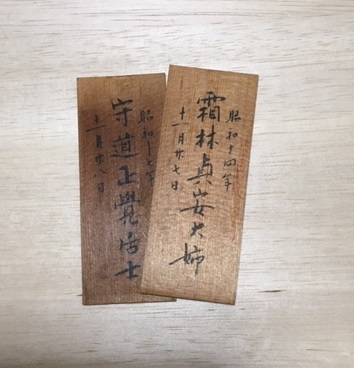 昭和十四年
霜林貞安大姉
十一月廿七日
昭和十七年
守道正覺居士
十一月廿八日